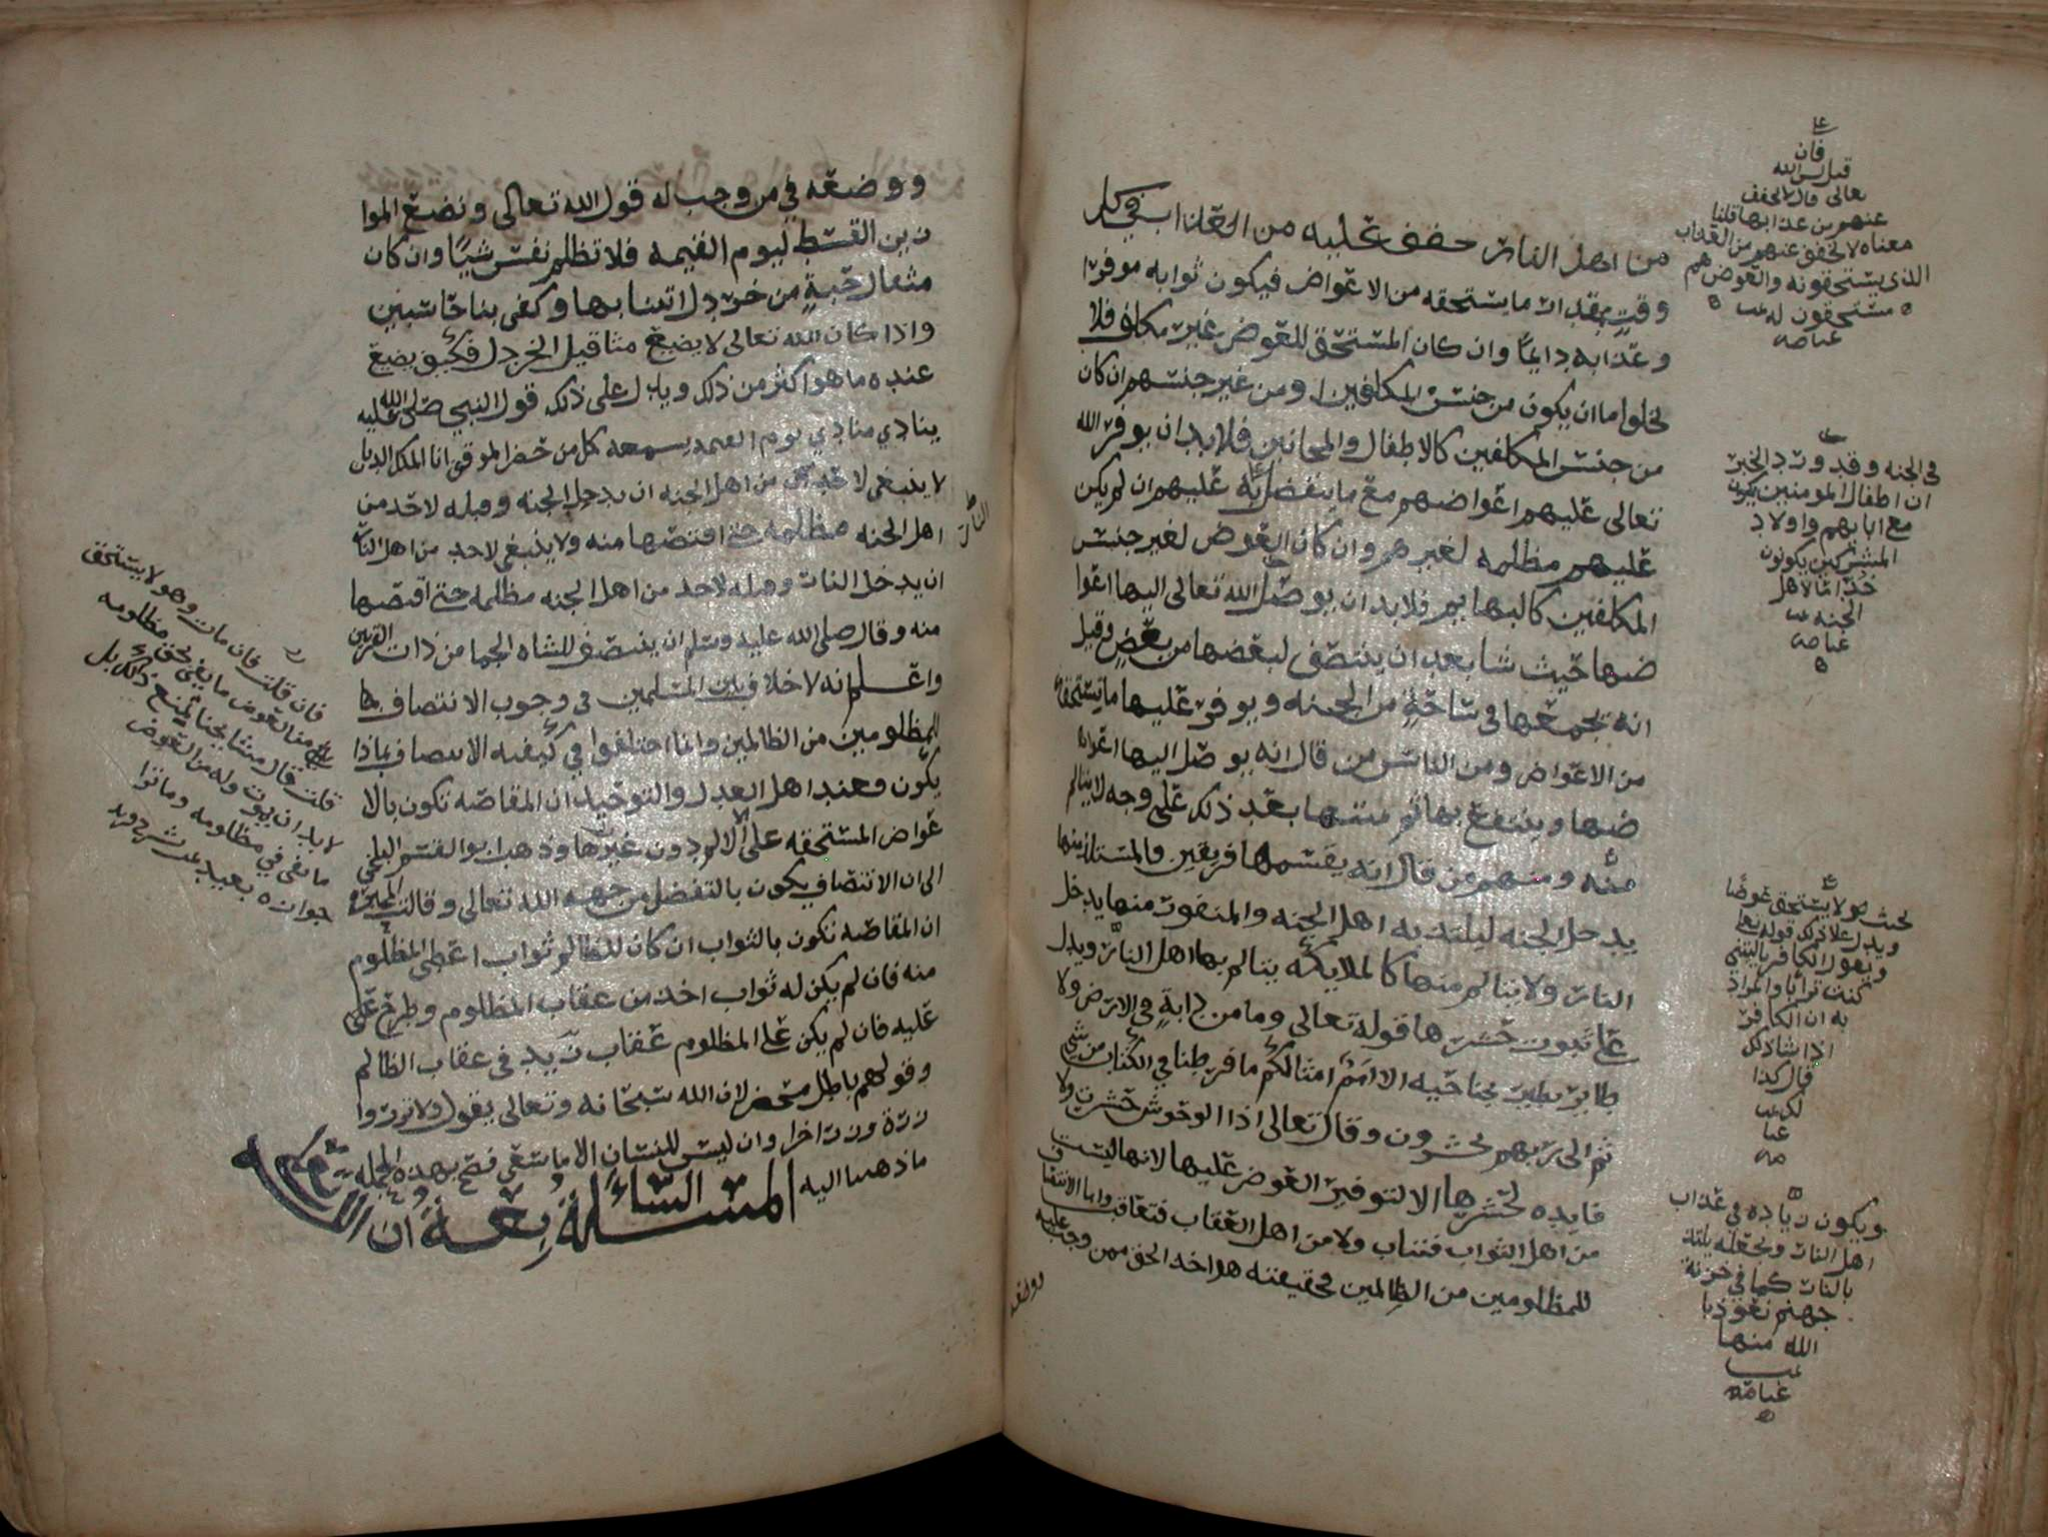 من اهل النار خفف عليه من العذاب في كل
وقت بمقدار ما يستحقه من الاعواض فيكون ثوابه موفرا
وعذابه دايما وان كان المستحق للعوض غير مكلف فلا
يخلوا اما ان يكون من جنس المكلفين او من غير جنسهم ان كان
من جنس المكلفين كالاطفال والمجانين فلا بد ان يوفر الله
تعالى عليهم اعواضهم مع ما يتفضل به عليهم ان لم يكن
عليهم مظلمه لغيرهم وان كان العوض لغير جنس
المكلفين كالبهايم فلا بد ان يوصل الله تعالى اليها اعوا
ضها حيث شا بعد ان ينتصف لبعضها من بعض وقيل
انه يجمعها في ساحة من الجنه ويوفر عليها ما تستحقه
من الاعواض ومن الناس من قال انه يوصل اليها اعوا
ضها وينتفع بها ثم يميتها بعد ذلك على وجه لا يتالم
منه ومنهم من قال انه يقسمها فريقين فالمستلذ منها
يدخل الجنه ليلتذ به اهل الجنه والمنفور منها يدخل
النار ولا يتالم منها كالملايكه يتالم بها اهل النار ويدل
على ثبوت حشرها قوله تعالى وما من دابة في الارض ولا
طاير يطير بجناحيه الا امم امثالكم ما فرطنا في الكتاب من شي
ثم الى ربهم يحشرون وقال تعالى اذا الوحوش حشرت ولا
فايده لحشرها الا لتوفير العوض عليها لانها ليست
من اهل الثواب فتثاب ولا من اهل العقاب فتعاقب واما الانتصا
للمظلومين من الظالمين فحقيقته هو اخذ الحق ممن وجب عليه
ووضعه
فان
قيل اليس الله
تعالى قال لا يخفف
عنهم من عذابها قلنا
معناه لا يخفف عنهم من العذاب
الذي يستحقونه والعوض هم
مستحقون له
في الجنه وقد ورد الخبر
ان اطفال المومنين يكونون
مع ابايهم واولاد
المشركين يكونون
خداما لاهل
الجنه
بحيث هو لا يستحق عوضا
ويدل على ذلك قوله تعالى
ويقول الكافر يا ليتني
كنت ترابا والمراد
به ان الكافر
اذا شا ذلك
قال كذا
ويكون زياده في عذاب
اهل النار ويجعله يلتذ
بالنار كما في خزنة
جهنم نعوذ با
الله منها
ووضعه في من وجب له قول الله تعالى ونضع الموا
زين القسط ليوم القيمه فلا تظلم نفس شيا وان كان
مثقال حبة من خردل اتينا بها وكفى بنا حاسبين
واذا كان الله تعالى لا يضيع مثاقيل الخردل فكيف يضيع
عنده ما هو اكثر من ذلك ويدل على ذلك قول النبي صلى الله عليه
ينادي منادي يوم القيمه يسمعه كل من حضر الموقف انا الملك الديان
لا ينبغي لاحد من اهل الجنه ان يدخل الجنه وقبله لاحد من
اهل الجنه مظلمه حتى اقتصها منه ولا ينبغي لاحد من اهل النار
ان يدخل النار وقبله لاحد من اهل الجنه مظلمه حتى اقتصها
منه وقال صلى الله عليه وسلم ان ينتصف للشاه الجما من ذات القرنين
واعلم انه لا خلاف بين المسلمين في وجوب الانتصاف
للمظلومين من الظالمين وانما اختلفوا في كيفيه الانتصاف بماذا
يكون فعند اهل العدل والتوحيد ان المقاصه تكون بالا
عواض المستحقه على الالم دون غيرها وذهب ابو القسم البلخي
الى ان الانتصاف يكون بالتفضل من جهه الله تعالى وقالت المجبره
ان المقاصه تكون بالثواب ان كان للظالم ثواب اعطى المظلوم
منه فان لم يكن له ثواب اخذ من عقاب المظلوم وطرح
عليه فان لم يكن على المظلوم عقاب زيد في عقاب الظالم
وقولهم باطل محض لان الله سبحانه وتعالى يقول ولا تزر وا
زرة وزر اخرا وان ليس للانسان الا ما سعى فصح بهذه الجمله
ما ذهبنا اليه
المسئلة السابعة ان الله
النار
فان قلت فان مات وهو لا يستحق
من العوض ما يفي بحق مظلومه
قلت قال مشايخنا يمنع ذلك بل
لا بد ان يموت وله من العوض
ما يفي في مظلومه